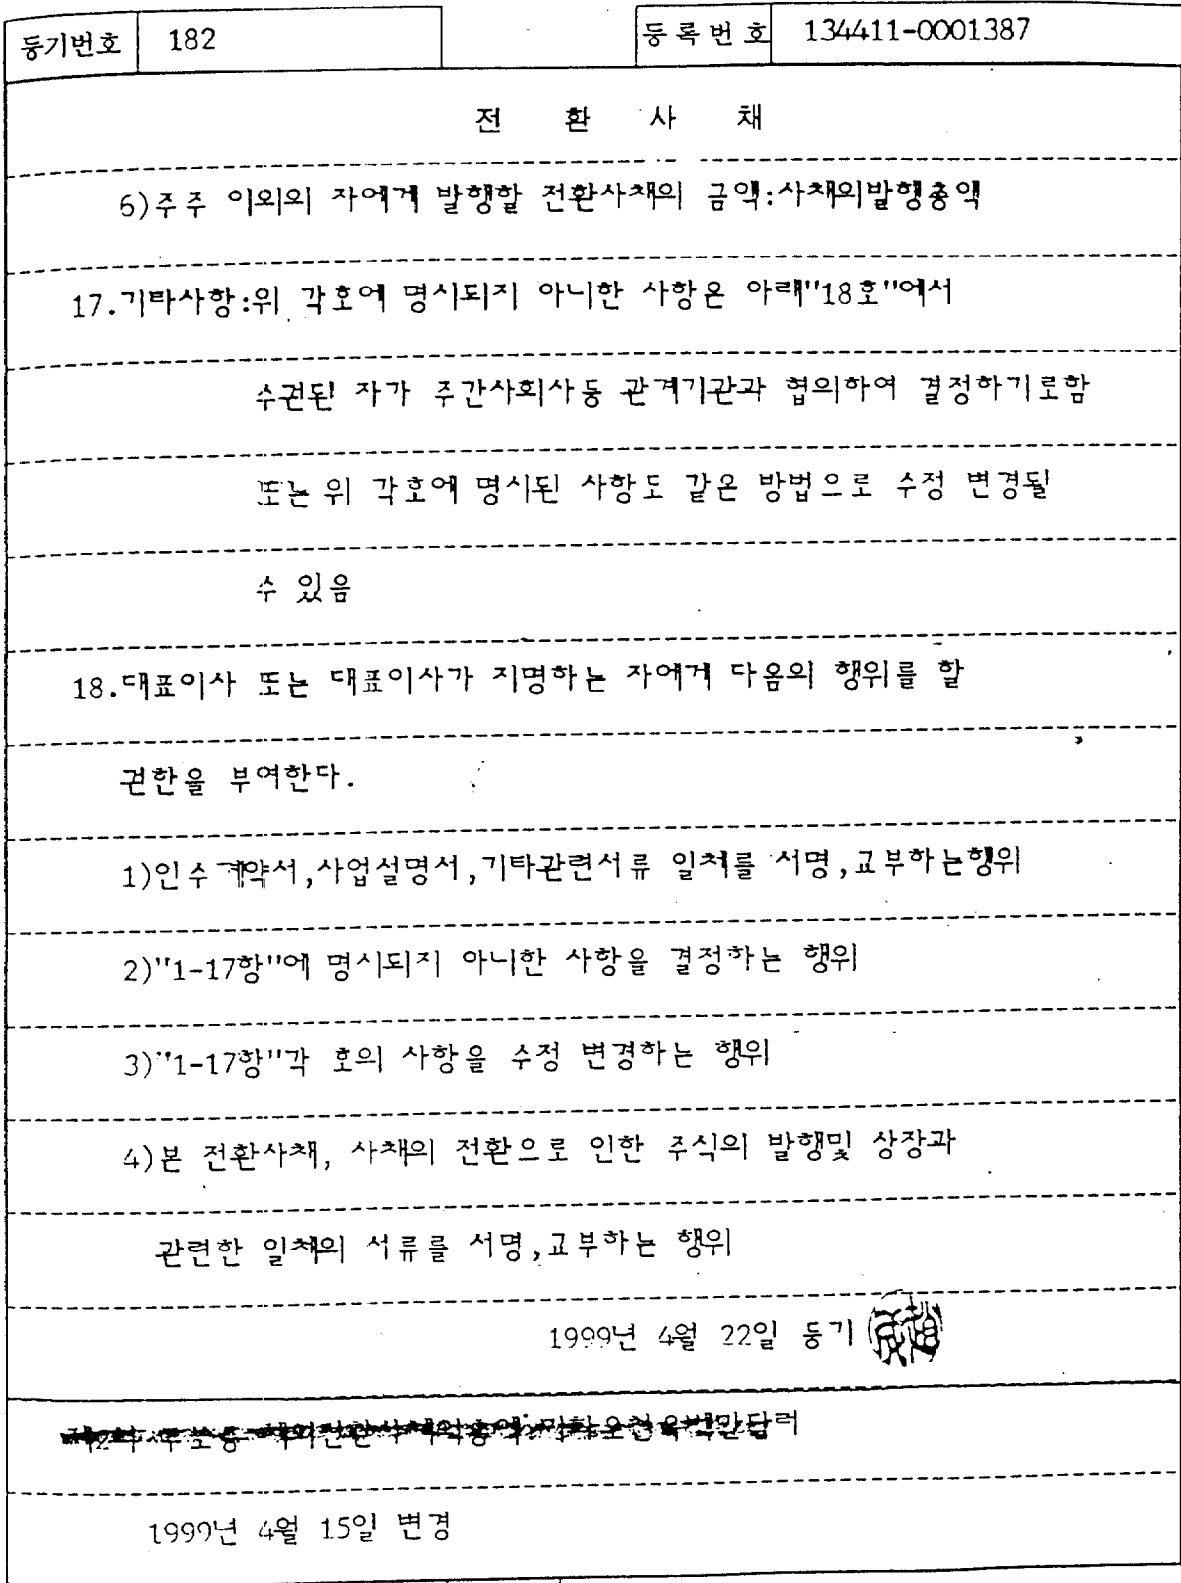 등기번호 182 등록번호 134411-0001387
전 환 사 채
6)주주 이외의 자에게 발행할 전환사채의 금액:사채의발행총액
17.기타사항:위 각호에 명시되지 아니한 사항은 아래"18호"에서
수권된 자가 주간사회사등 관계기관과 협의하여 결정하기로함
또는 위 각호에 명시된 사항도 같은 방법으로 수정 변경될
수 있음
18.대표이사 또는 대표이사가 지명하는 자에게 다음의 행위를 할
권한을 부여한다.
1)인수계약서,사업설명서,기타관련서류 일체를 서명,교부하는행위
2)"1-17항"에 명시되지 아니한 사항을 결정하는 행위
3)"1-17항"각 호의 사항을 수정 변경하는 행위
4)본 전환사채, 사채의 전환으로 인한 주식의 발행및 상장과
관련한 일체의 서류를 서명,교부하는 행위
1999년 4월 22일 등기
1999년 4월 15일 변경